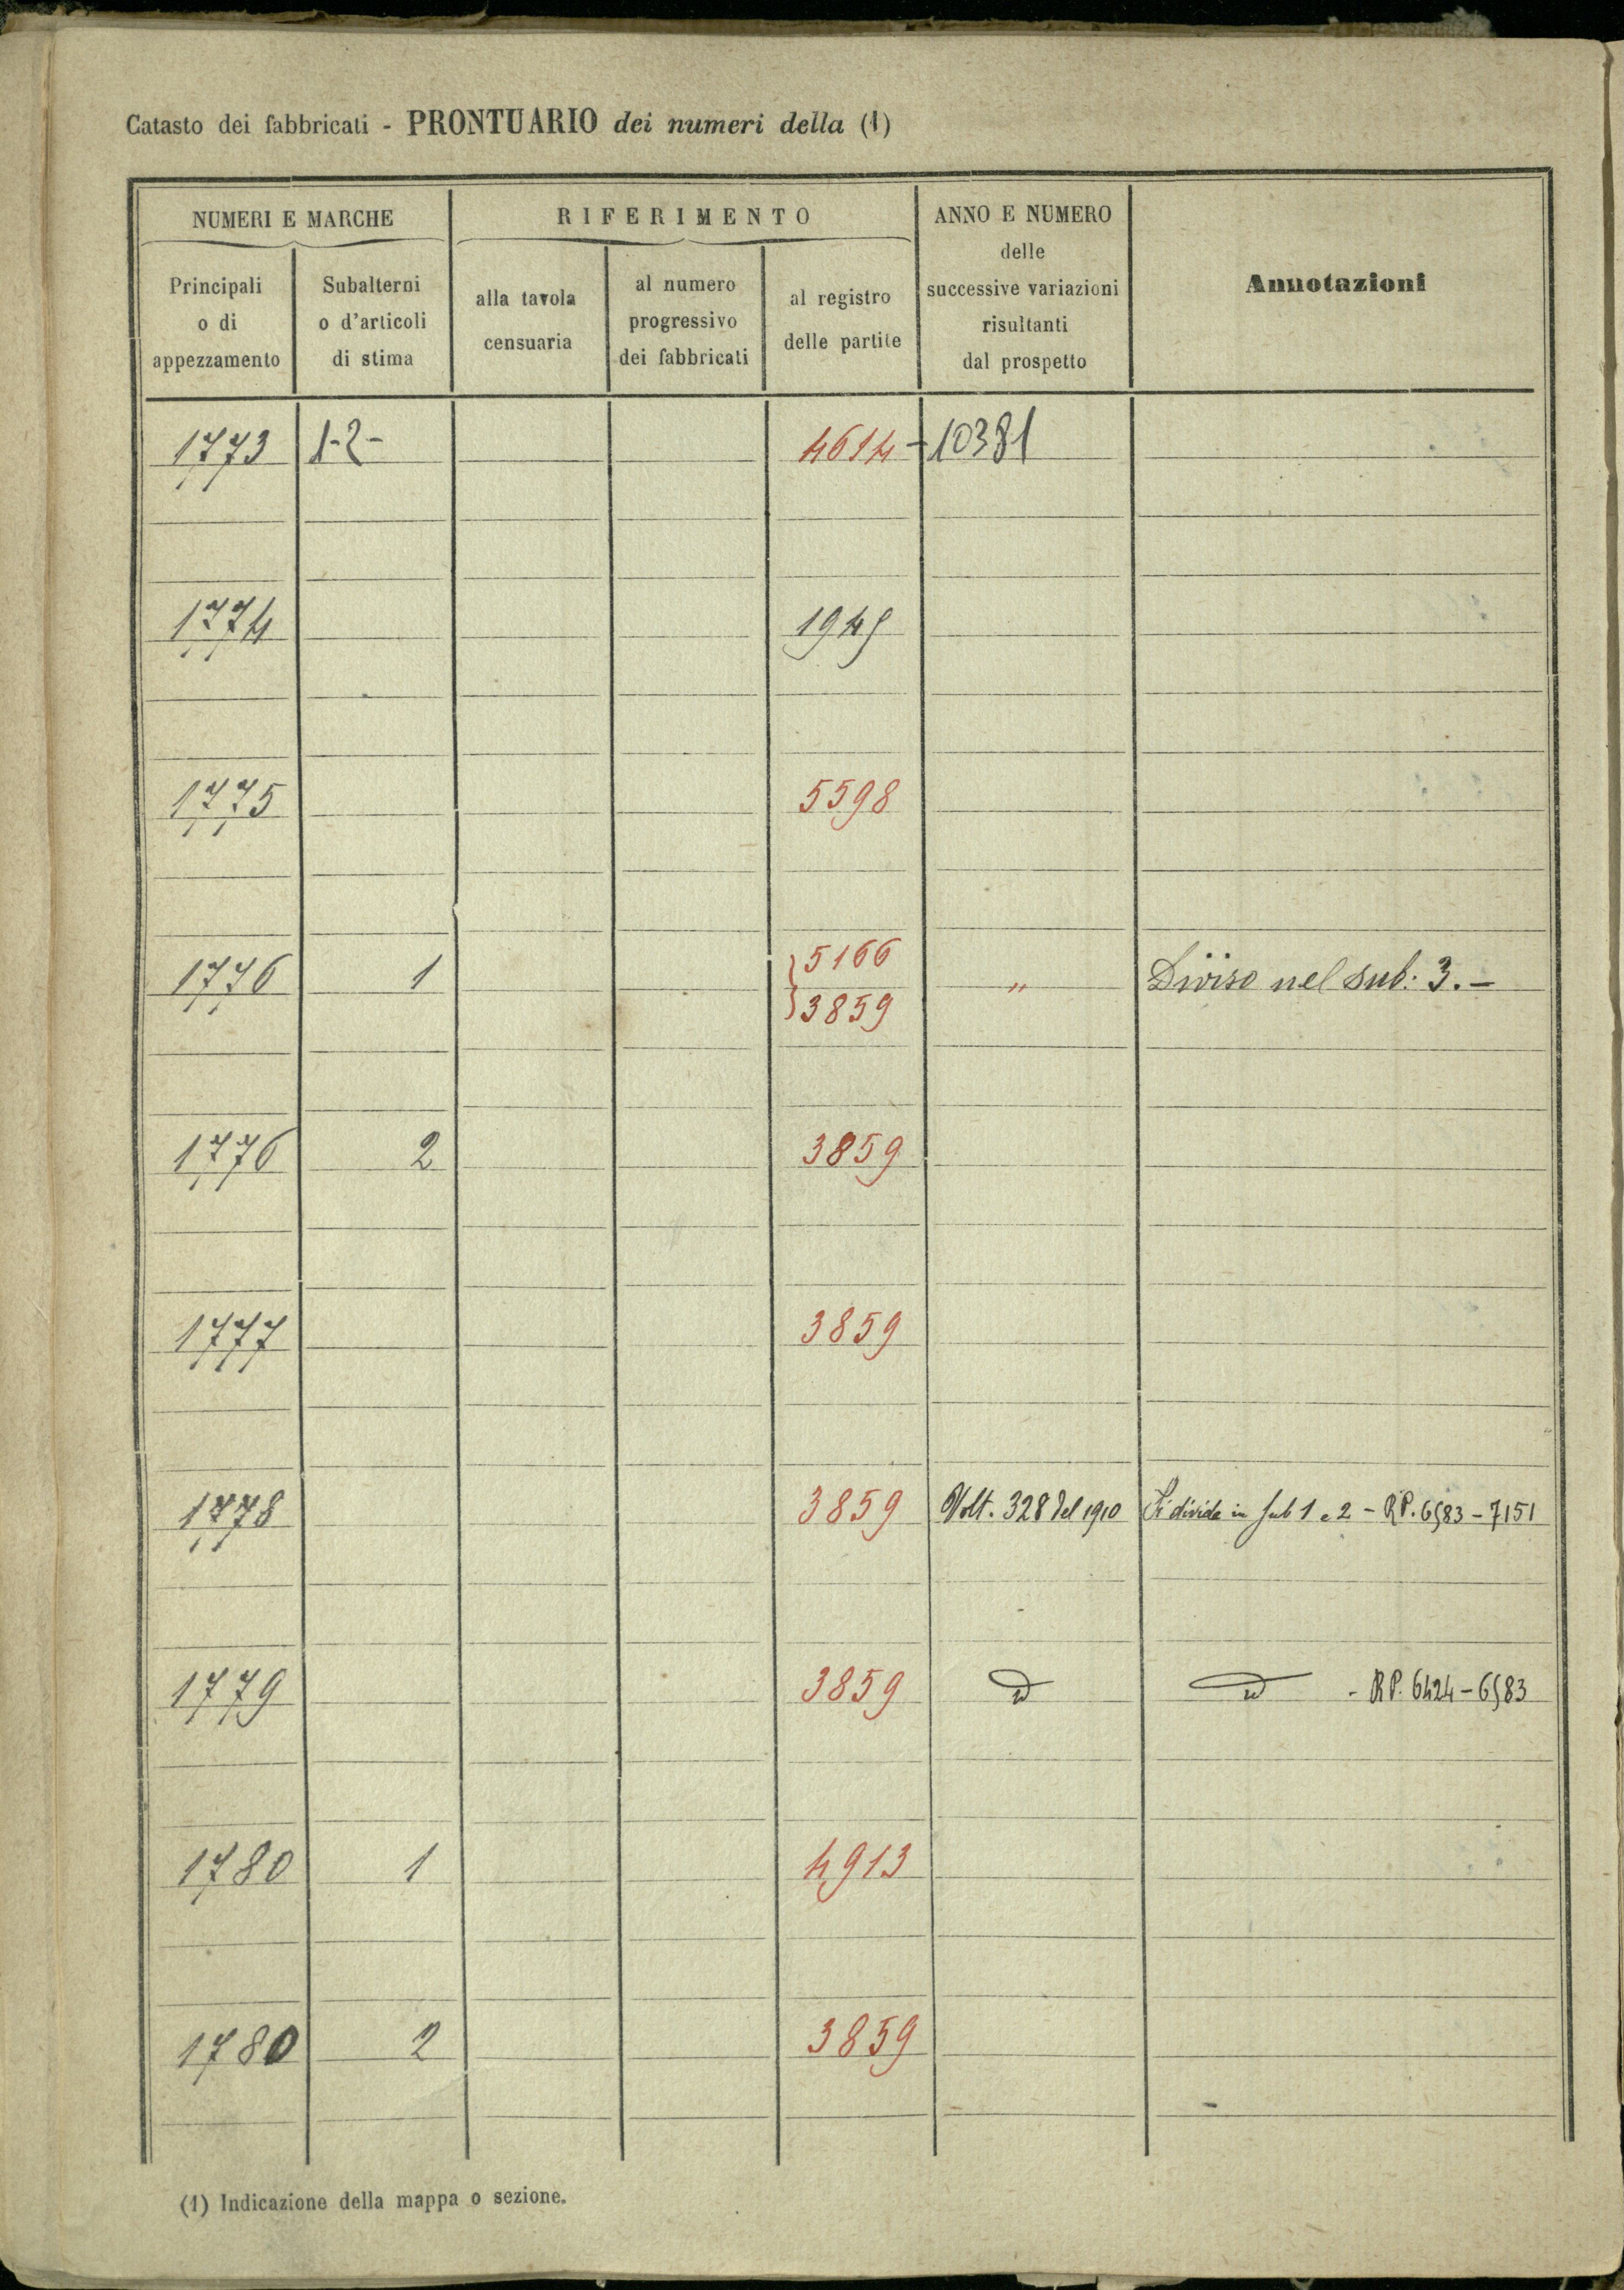 Catasto dei fabbricati - PRONTUARIO dei numeri della (1)
NUMERI E MARCHE
RIFERIMENTO
ANNO E NUMERO
delle
successive variazioni
risultanti
dal prospetto
Annotazioni
Principali
o di
appezzamento
Subalterni
o d'articoli
di stima
alla tavola
censuaria
al numero
progressivo
dei fabbricati
al registro
delle partite
1773 1-2- 4614 - 10381
1774 1945
1775 5598
1776 1 5166 3859 " Diviso nel sub: 3.-
1776 2 3859
1777 3859
1778 3859 Volt. 328 del 1910 Si divide in sub 1 e 2 - RP. 6583 - 7151
1779 3859 id id - RP. 6424 - 6583
1780 1 4913
1780 2 3859
(1) Indicazione della mappa o sezione.